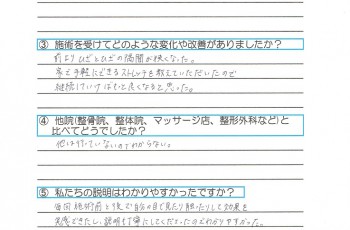 ③ 施術を受けてどのような変化や改善がありましたか？
前よりひざとひざの隙間が狭くなった。
家で手軽にできるストレッチも教えていただいたので
継続していけばもっと良くなると思った。
④ 他院(整骨院、整体院、マッサージ店、整形外科など)と
比べてどうでしたか？
他は行っていないのでわからない。
⑤ 私たちの説明はわかりやすかったですか？
毎回施術前と後で自分の目で見たり触ったりして効果を
実感できたし、説明も丁寧にしてくださったのでわかりやすかった。